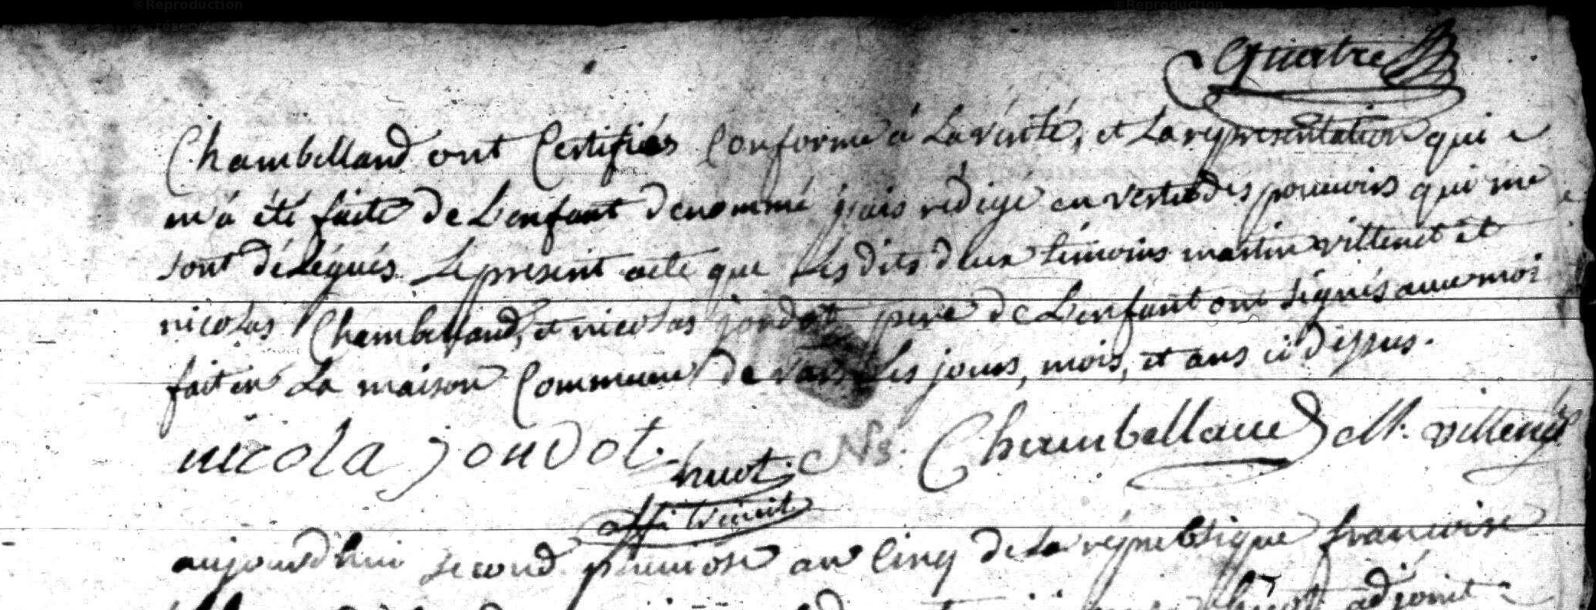 © Reproduction
© Reproduction
quatre
Chambelland ont Certifiés Conforme a La vérité, et La representation qui
m'a été faite de L'enfant denommé j'ais rédigé en vertu des pouvoirs qui me
sont délégués Le present acte que Les dits deux témoins martin villenet et
nicolas Chambelland, et nicolas joudot pere de L'enfant ont signés avec moi
fait en La maison Commune de vars Les jours, mois, et ans ci dessus.
nicola joudot huot Ns. Chambelland M. villenet
aujourd'hui second pluviose an Cinq de La république francoise
huot adjoint